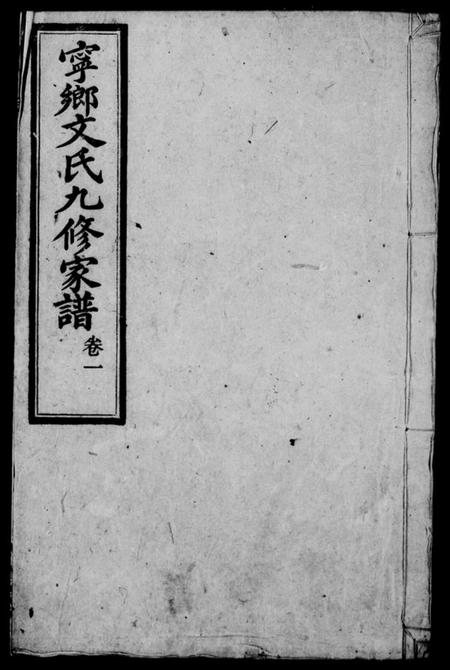 寧鄉文氏九修家譜
卷一